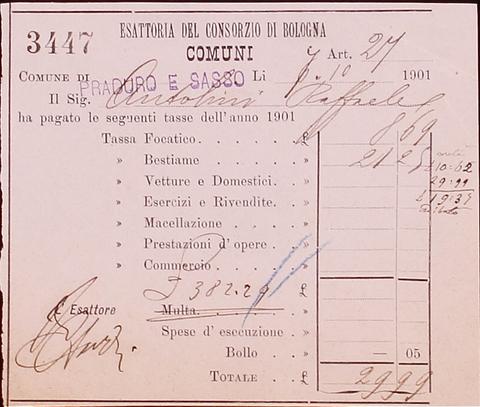 3447
ESATTORIA DEL CONSORZIO DI BOLOGNA
COMUNI
Art. 27
COMUNE DI PRADURO E SASSO Li 10 1901
Il Sig. Antolini Raffaele
ha pagato le seguenti tasse dell'anno 1901
Tassa Focatico . . . . . . £ 8 69
» Bestiame . . . . . . » 21 25
» Vetture e Domestici . . »
» Esercizi e Rivendite . . »
» Macellazione . . . . »
» Prestazioni d'opere . . »
» Commercio . . . . . »
metà
10=62
29=99
19=37
382.29 £
L'Esattore Multa . . . . . »
Spese d'esecuzione . »
Bollo . . » — 05
TOTALE . . £ 29 99